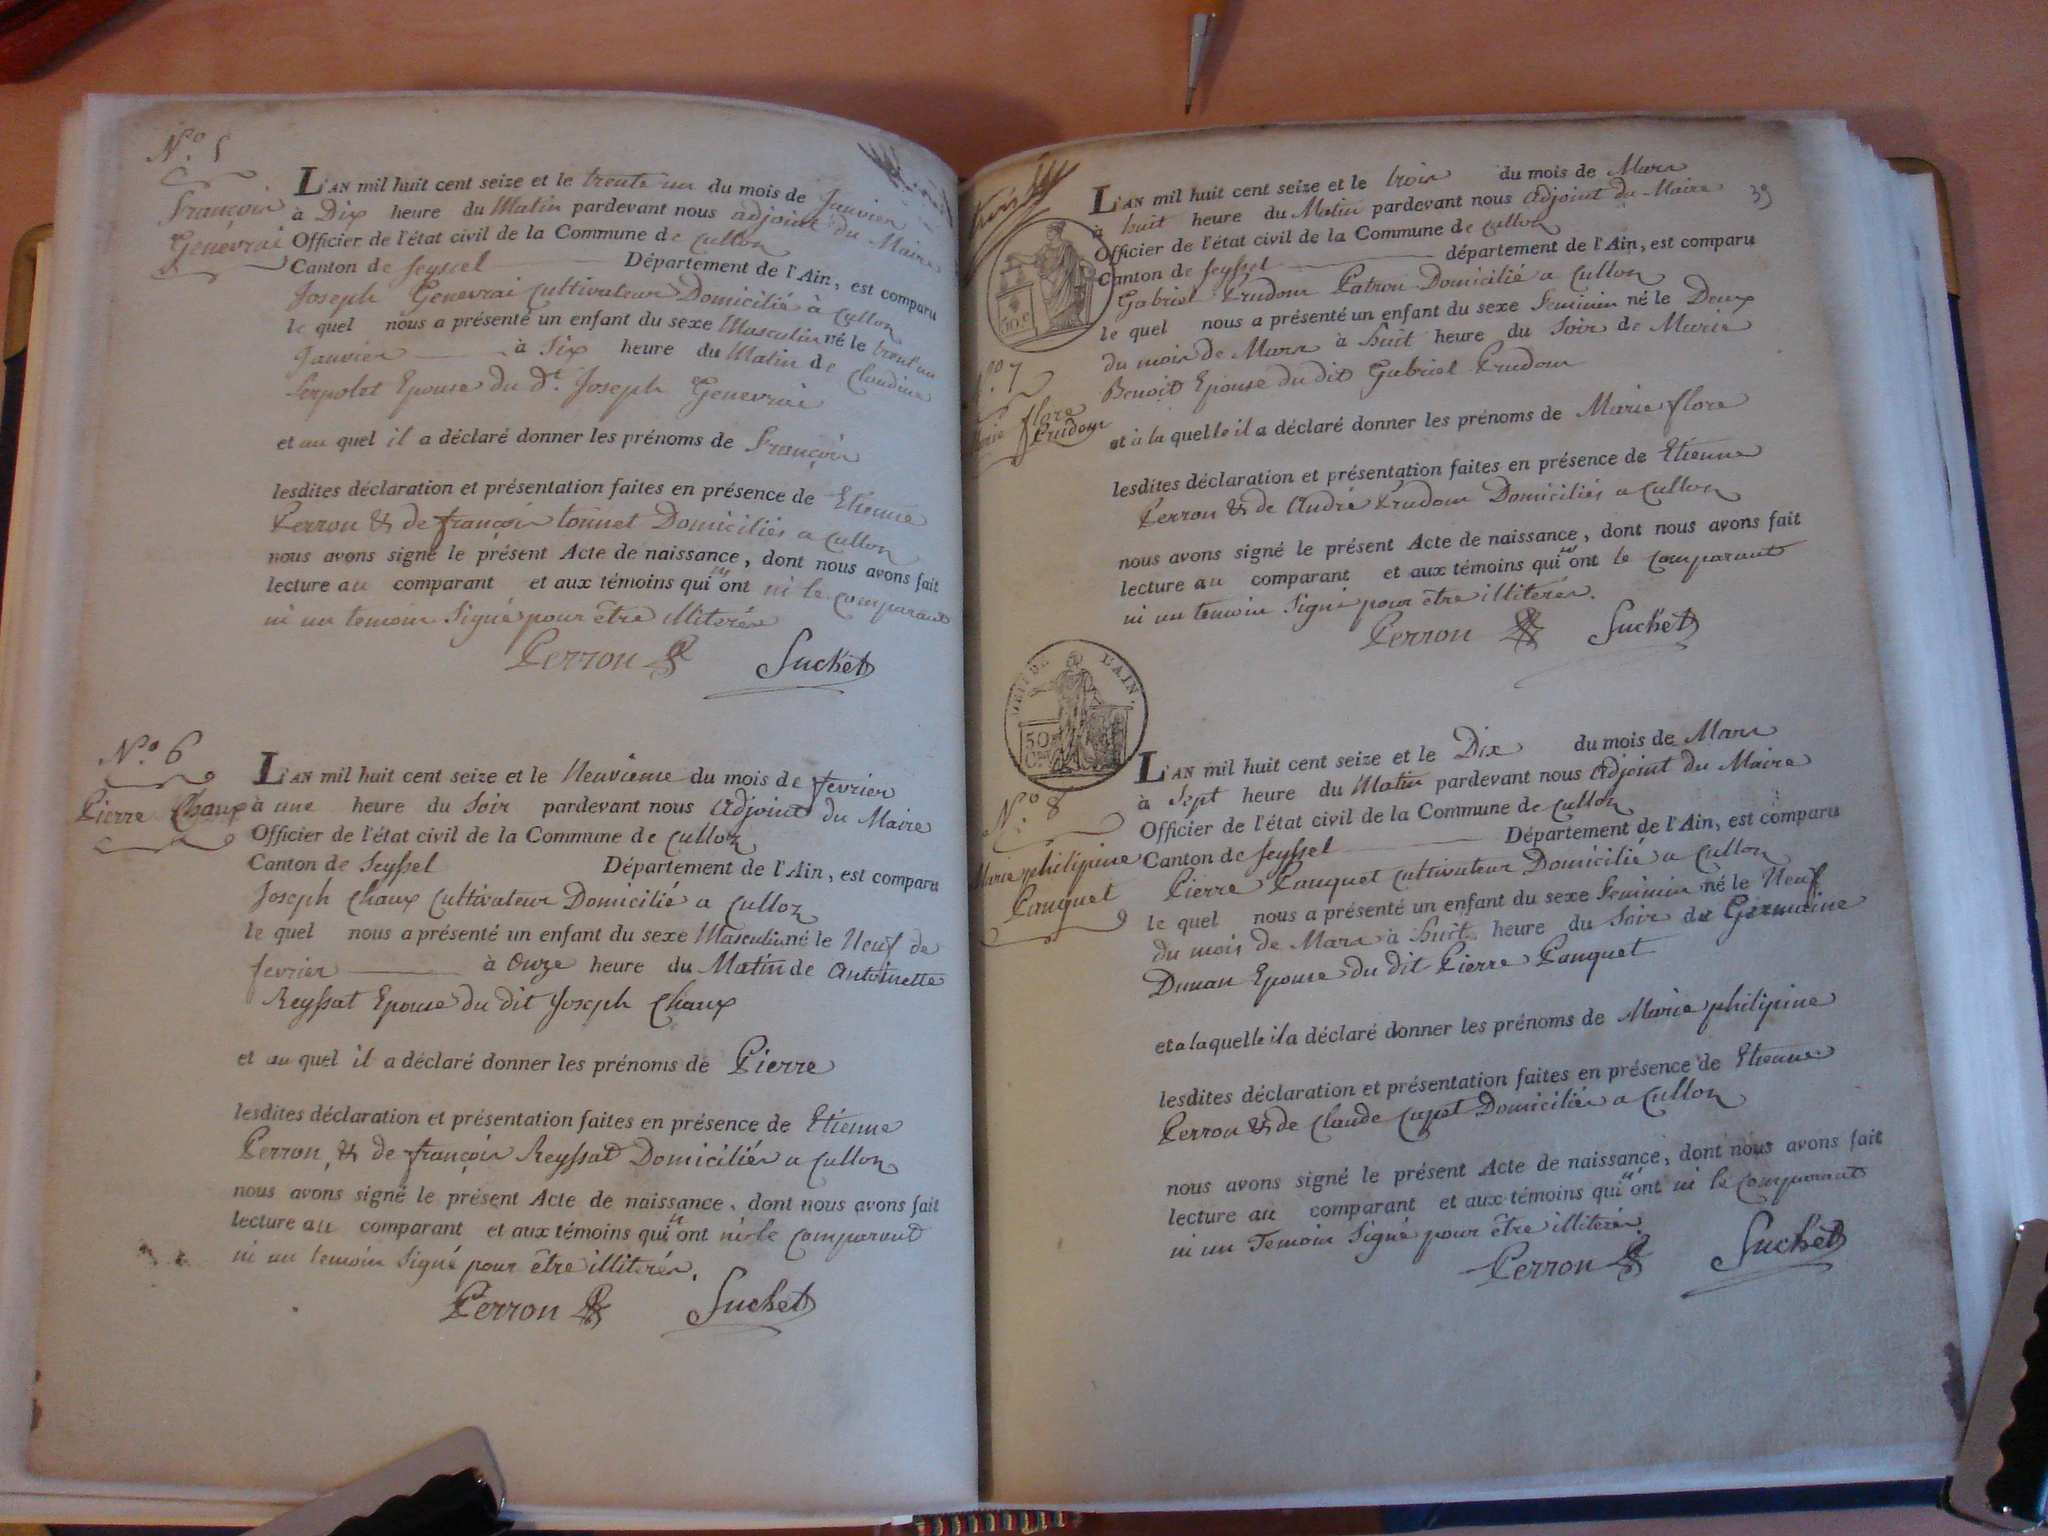 N.º 5
François
Genévrai
L'AN mil huit cent seize et le trente un du mois de Janvier
à Dix heure du Matin pardevant nous adjoint du Maire
Officier de l'état civil de la Commune de culloz
Canton de seyssel Département de l'Ain, est comparu
Joseph Genevrai cultivateur Domicilié à Culloz
le quel nous a présenté un enfant du sexe Masculin né le trent'un
Janvier à Six heure du Matin de Claudine
Serpolet Epouse du dt. Joseph Genevrai
et au quel il a déclaré donner les prénoms de François
lesdites déclaration et présentation faites en présence de Etienne
Perron & de françois tonnet Domiciliés a Culloz
nous avons signé le présent Acte de naissance, dont nous avons fait
lecture au comparant et aux témoins qui n'ont ni le comparant
ni un temoin Signé pour être illiterés
Perron Suchet
N.º 6
Pierre Chaux
L'AN mil huit cent seize et le Neuvieme du mois de fevrier
à une heure du Soir pardevant nous Adjoint du Maire
Officier de l'état civil de la Commune de culloz
Canton de Seyssel Département de l'Ain, est comparu
Joseph Chaux Cultivateur Domicilié a Culloz
le quel nous a présenté un enfant du sexe Masculin né le Neuf de
fevrier à Onze heure du Matin de Antoinette
Reyssat Epouse du dit Joseph Chaux
et au quel il a déclaré donner les prénoms de Pierre
lesdites déclaration et présentation faites en présence de Etienne
Perron, & de françois Reyssat Domiciliés a Culloz
nous avons signé le présent Acte de naissance, dont nous avons fait
lecture au comparant et aux témoins qui n'ont ni le comparant
ni un temoin Signé pour être illiterés.
Perron Suchet
39
50 c
N.º 7
flore
Prudom
L'AN mil huit cent seize et le trois du mois de Mars
à huit heure du Matin pardevant nous Adjoint du Maire
Officier de l'état civil de la Commune de culloz
Canton de seyssel département de l'Ain, est comparu
Gabriel Prudom Patron Domicilié a Culloz
le quel nous a présenté un enfant du sexe Feminin né le Deux
du mois de Mars à huit heure du Soir de Marie
Benoit Epouse du dit Gabriel Prudom
et à la quelle il a déclaré donner les prénoms de Marie flore
lesdites déclaration et présentation faites en présence de Etienne
Perron & de André Prudom Domiciliés a Culloz
nous avons signé le présent Acte de naissance, dont nous avons fait
lecture au comparant et aux témoins qui n'ont le comparant
ni un temoin Signé pour être illiterés.
Perron Suchet
DEPT DE L'AIN.
50
Cmes
N.º 8
Marie philipine
Panquet
L'AN mil huit cent seize et le Dix du mois de Mars
à Sept heure du Matin pardevant nous Adjoint du Maire
Officier de l'état civil de la Commune de culloz
Canton de seyssel Département de l'Ain, est comparu
Pierre Panquet cultivateur Domicilié a Culloz
le quel nous a présenté un enfant du sexe Feminin né le Neuf
du mois de Mars à huit heure du Soir de Germaine
Dunan Epouse du dit Pierre Panquet
et a laquelle il a déclaré donner les prénoms de Marie philipine
lesdites déclaration et présentation faites en présence de Etienne
Perron & de Claude Domiciliés a Culloz
nous avons signé le présent Acte de naissance, dont nous avons fait
lecture au comparant et aux témoins qui n'ont ni le comparant
ni un Temoin Signé pour être illiterés.
Perron Suchet